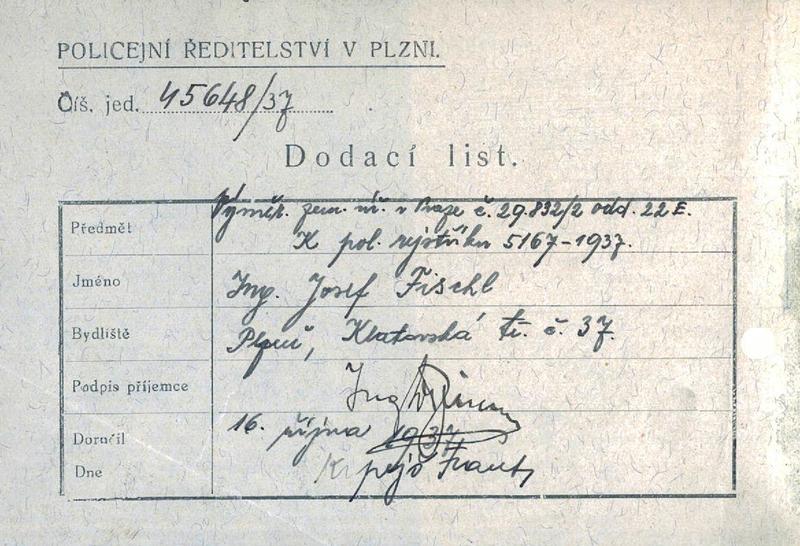 POLICEJNÍ ŘEDITELSTVÍ V PLZNI.
Číš. jed. 45648/37
Dodací list.
Předmět Výměr. zem. úř. v Praze č. 29.832/2 odd. 22 E.
K pol. rejstříku 5167-1937.
Jméno Ing. Josef Fischl
Bydliště Plzeň, Klatovská tř. č. 37.
Podpis příjemce Ing
Doručil 16. října 1937
Dne